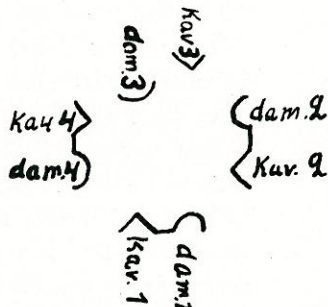 Kav3
dam.3
Kav 4
dam.4
dam.2
Kav. 2
Kav. 1
dam.1